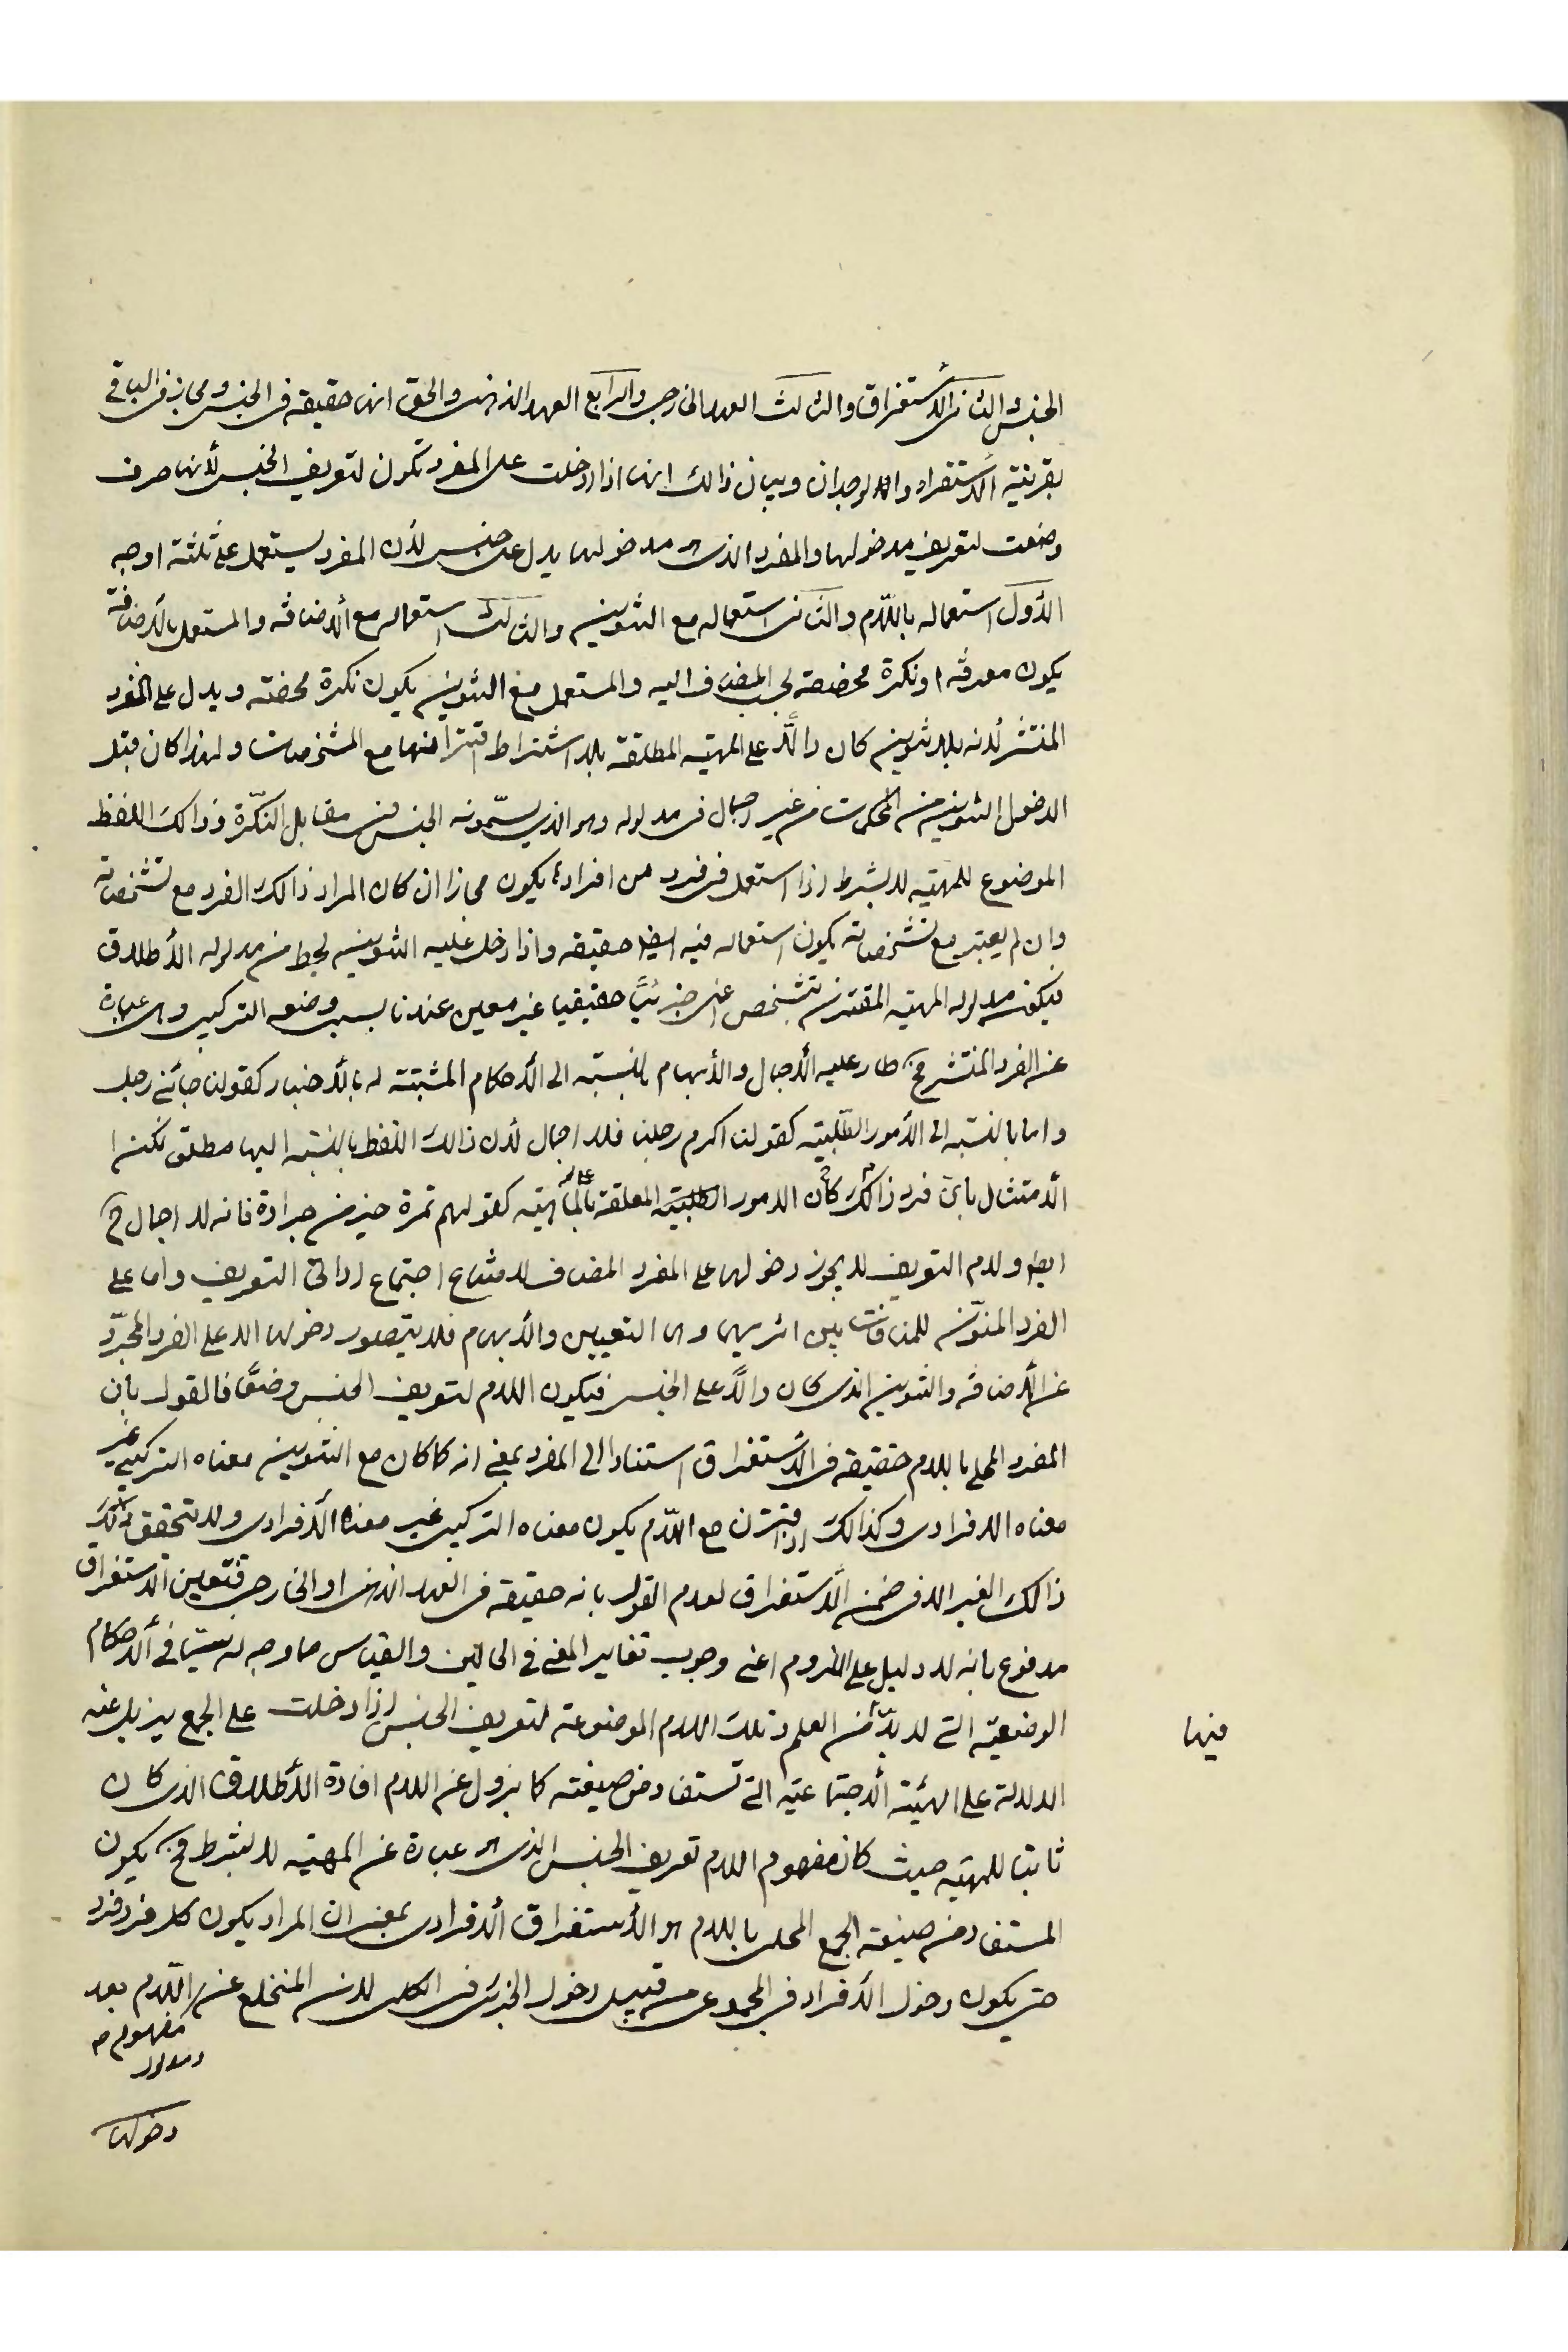 الجنس والثانى الأستغراق والثالث العهد الخارجى والرابع العهد الذهنى والحق انها حقيقة فى الجنس ومجاز فى الباقى
بقرينة الأستقراء والوجدان وبيان ذالك انها اذا دخلت على المفرد تكون لتعريف الجنس لأنها حرف
وضعت لتعريف مدخولها والمفرد الذى هو مدخولها يدل على جنس لأن المفرد يستعمل على ثلثة اوجه
الأول استعماله باللام والثانى استعماله مع التنوين والثالث استعماله مع الأضافة والمستعمل بالأضافة
يكون معرفة او نكرة مخصصة بحسب المضاف اليه والمستعمل مع التنوين يكون نكرة محضة ويدل على الفرد
المنتشر لأنه بلا تنوين كان دالًا على المهية المطلقة بلا اشتراط اقترانها مع المشخصات ولهذا كان قبل
الدخول التنوين من المحكمات من غير اجمال فى مدلوله وهو الذى يسمّونه الجنس فى مقابل النكرة وذالك اللفظ
الموضوع للمهية لا بشرط اذا استعمل فى فرد من افراده يكون مجازا ان كان المراد ذالك الفرد مع تشخصاته
وان لم يعتبر مع تشخصاته يكون استعماله فيه ايضا حقيقة واذا دخل عليه التنوين يحط من مدلوله الأطلاق
فيكون مدلوله المهية المقترنة بتشخص اعنى جزئيًا حقيقيا غير معين عندنا بسبب وضعه التركيبى وهى عبارة
عن الفرد المنتشر فح طار عليه الأجمال والأبهام بالنسبة الى الأحكام المثبتة له بالأخبار كقولنا جائنى رجل
واما بالنسبة الى الأمور الطلبية كقولنا اكرم رجلا فلا اجمال لأن ذالك اللفظ بالنسبة اليها مطلق لكن ا
الأمتثال باىّ فرد ذالك كان الامور الطلبية المعلقة بالماهية كقولهم تمرة خير من جرادة فانه لا اجمال ح
ايضا ولام التعريف لا يجوز دخولها على المفرد المضاف لامتناع اجتماع اداتى التعريف واما على
الفرد المنوّن للمنافات بين اثريهما وهى التعيين والأبهام فلا يتصور دخولها الا على الفرد المجرّد
عن الأضافة والتنوين الذى كان دالًا على الجنس فيكون اللام لتعريف الجنس وضعًا فالقول بان
المفرد المحلى باللام حقيقة فى الأستغراق استنادا الى المفرد بمعنى انه كما كان مع التنوين معناه التركيبى غير
معناه الافرادى وكذالك اذا اقترن مع اللام يكون معناه التركيبى غير معناه الأفرادى ولا يتحقق ذالك
ذالك الغير الا فى ضمن الأستغراق لعدم القول بانه حقيقة فى العهد الذهنى او الخارجى فتعين الأستغراق
مدفوع بانه لا دليل على الملزوم اعنى وجوب تغاير المعنى فى الحالين والقياس مما لا وجه له سيّما فى الأحكام
الوضعية التى لا بدّ من العلم وتلك اللام الموضوعة لتعريف الجنس اذا دخلت على الجمع يزيل عنه
فيها
الدلالة على الهيئة الأجتماعية التى تستفاد من صيغته كما يزول عن اللام افادة الأطلاق الذى كان
ثابتا للمهية حيث كان مفهوم اللام تعريف الجنس الذى هو عبارة عن المهية لا بشرط فح يكون
المستفاد من صيغة الجمع المحلى باللام هو الأستغراق الأفرادى بمعنى ان المراد يكون كل فرد فرد
حتى يكون دخول الأفراد فى المجموع من قبيل دخول الجزئى فى الكلى لان المنخلع عن اللام بعد
مفهوم
ومدلول
دخولها